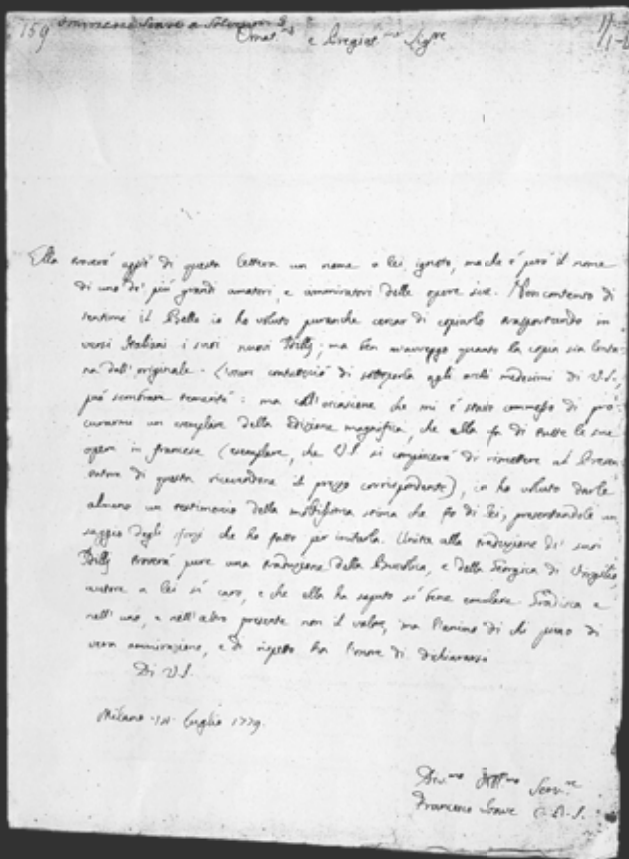 159 Francesco Soave a Salomon G.
Ornat.mo e Pregiat.mo Sig.re
Ella troverà appiè di questa lettera un nome a lei ignoto, ma che è però il nome
di uno de' più grandi amatori, e ammiratori delle opere sue. Non contento di
sentirne il bello io ho voluto puranche cercar di copiarlo trasportando in
versi Italiani i suoi nuovi Idilli; ma ben m'avveggo quanto la copia sia lonta-
na dall'originale. L'aver di sottoporla agli occhi medesimi di V.S.
può sembrare temerità: ma coll'occasione che mi è stato commesso di pro-
curarne un esemplare della edizione magnifica, che ella fa di tutte le sue
opere in francese (esemplare, che V.S. si compiacerà di rimettere al Presen-
tatore di questa ricevendone il prezzo corrispondente), io ho voluto darle
almeno un testimonio della moltissima stima che fo di lei, presentandole un
saggio degli sforzi che ho fatto per imitarla. Unita alla traduzione de' suoi
Idilli troverà pure una traduzione della Buccolica, e della Georgica di Virgilio,
autore a lei sì caro, e che ella ha saputo sì bene emulare. Gradisca e
nell'uno, e nell'altro presente non il valore, ma l'animo di chi pieno di
vera ammirazione, e di rispetto ha l'onore di dichiararsi
Di V.S.
Milano 14 Luglio 1779.
Dev.mo Obb.mo Serv.re
Francesco Soave C.R.S.